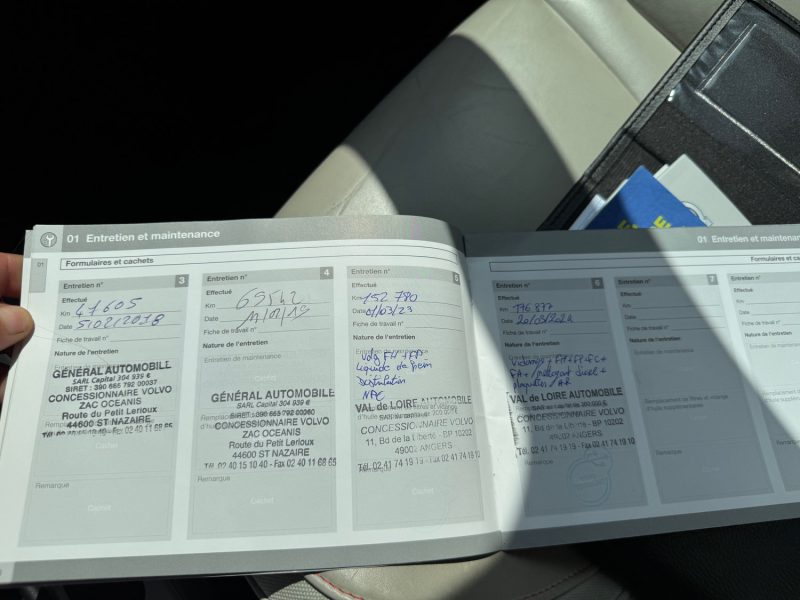 01 Entretien et maintenance
01
Formulaires et cachets
Entretien n° 3
Effectué
Km 41605
Date 5/02/2018
Fiche de travail n°
Nature de l'entretien
GÉNÉRAL AUTOMOBILE
SARL Capital 304 939 €
SIRET : 390 665 792 00037
CONCESSIONNAIRE VOLVO
ZAC OCEANIS
Route du Petit Lerioux
44600 ST NAZAIRE
Remarque
Cachet
Entretien n° 4
Effectué
Km 69542
Date
Fiche de travail n°
Nature de l'entretien
Entretien de maintenance
GÉNÉRAL AUTOMOBILE
SARL Capital 304 939 €
SIRET : 390 665 792 00060
CONCESSIONNAIRE VOLVO
ZAC OCEANIS
Route du Petit Lerioux
44600 ST NAZAIRE
Tél. 02 40 15 10 40 - Fax 02 40 11 68 65
Remarque
Cachet
Entretien n° 5
Effectué
Km 152 780
Date 01/03/23
Fiche de travail n°
Nature de l'entretien
Entretien de maintenance
Liquide de frein
Distribution
VAL de LOIRE AUTOMOBILE
CONCESSIONNAIRE VOLVO
11, Bd de la Liberté - BP 10202
49002 ANGERS
Tél. 02 41 74 19 19 - Fax 02 41 74 19 10
Remarque
Cachet
01 Entretien et maintenance
Formulaires et ca
Entretien n° 6
Effectué
Km 176 877
Date
Fiche de travail n°
Nature de l'entretien
Entretien de maintenance
VAL de LOIRE AUTOMOBILE
CONCESSIONNAIRE VOLVO
11, Bd de la Liberté - BP 10202
49002 ANGERS
Tél. 02 41 74 19 19 - Fax 02 41 74 19 10
Remarque
Cachet
Entretien n° 7
Effectué
Km
Date
Fiche de travail n°
Nature de l'entretien
Entretien de maintenance
Remplacement de filtres et vidange
d'huile supplémentaires
Remarque
Cachet